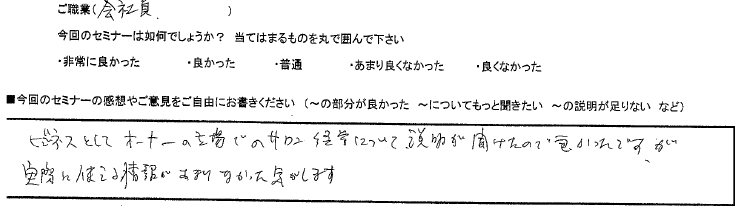 ご職業（会社員　　　　　）
今回のセミナーは如何でしょうか？ 当てはまるものを丸で囲んで下さい
・非常に良かった　・良かった　・普通　・あまり良くなかった　・良くなかった
■今回のセミナーの感想やご意見をご自由にお書きください（～の部分が良かった ～についてもっと聞きたい ～の説明が足りない など）
ビジネスとしてオーナーの立場でのサロン経営について説明が聞けたので良かったですが、
実際に使える情報があまりなかった気がします